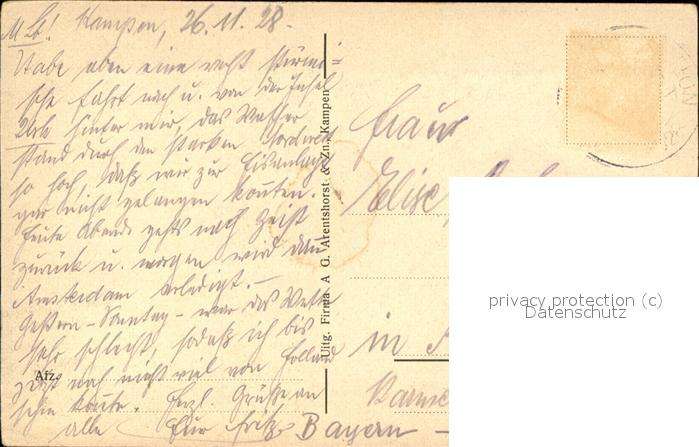 M. Lb! Kampen, 26.11.28.
Habe eben eine recht stürmi=
sche Fahrt nach u. von der Insel
Urk hinter mir, das Wasser
stand durch den starken Nordwest
so hoch, daß wir zur Eisanlage
gar nicht gelangen konnten.
Heute Abend gehts nach Zeist
zurück u. morgen wird dann
Amsterdam erledigt.–
Gestern – Sonntag – war das Wetter
sehr schlecht, sodaß ich bis
jetzt noch nicht viel von Holland
sehen konnte. Herzl. Grüße an
alle Euer Fritz.
Afz.
Uitg. Firma A G. Arentshorst & Zn., Kampen
Frau
Elise
in
Bayern –
privacy protection (c)
Datenschutz